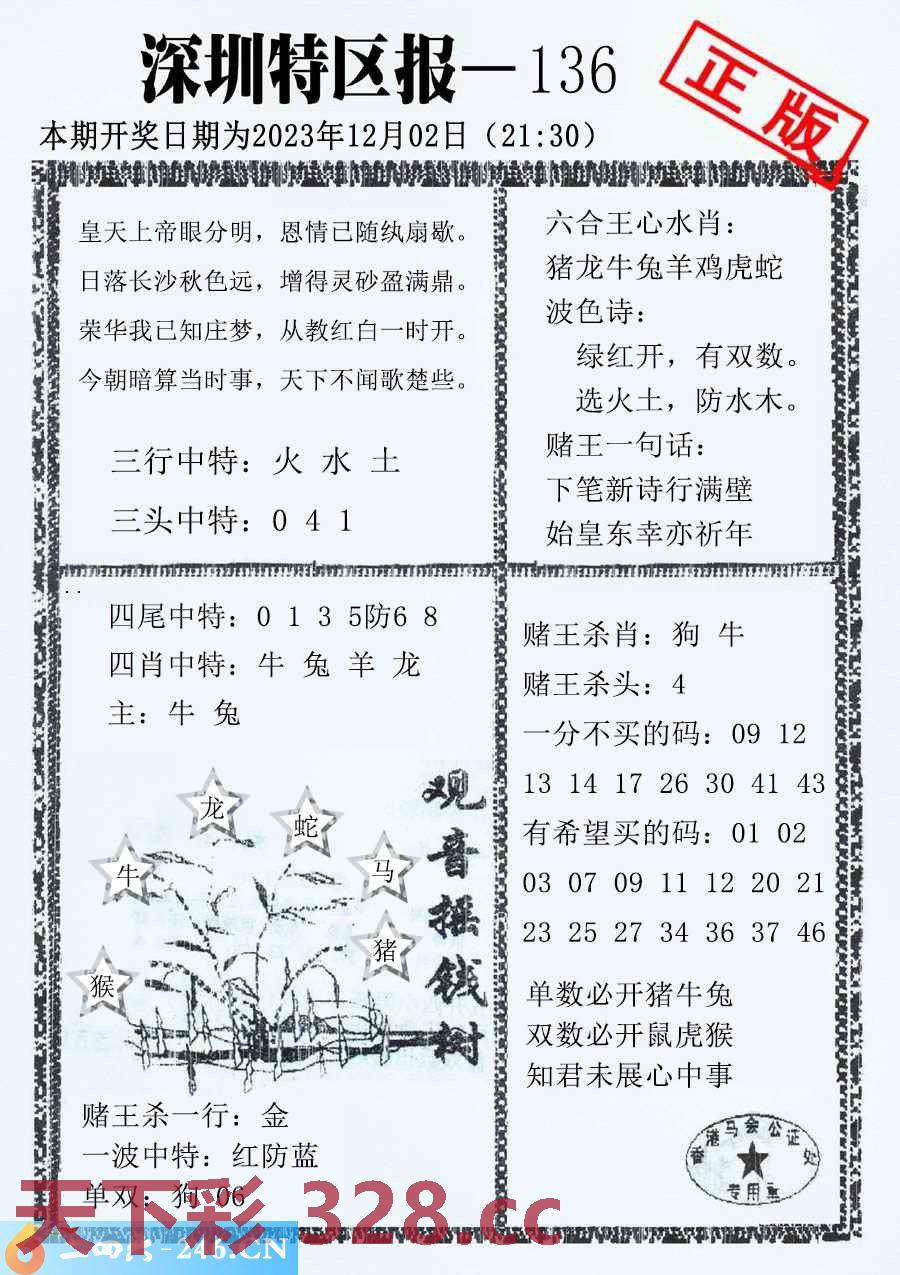 深圳特区报—136
正版
本期开奖日期为2023年12月02日（21:30）
皇天上帝眼分明，恩情已随纨扇歇。
日落长沙秋色远，增得灵砂盈满鼎。
荣华我已知庄梦，从教红白一时开。
今朝暗算当时事，天下不闻歌楚些。
三行中特：火 水 土
三头中特：0 4 1
六合王心水肖：
猪龙牛兔羊鸡虎蛇
波色诗：
绿红开，有双数。
选火土，防水木。
赌王一句话：
下笔新诗行满壁
始皇东幸亦祈年
四尾中特：0 1 3 5防6 8
四肖中特：牛 兔 羊 龙
主：牛 兔
龙
蛇
牛
马
猪
猴
观音摇钱树
赌王杀一行：金
一波中特：红防蓝
单双：狗 06
赌王杀肖：狗 牛
赌王杀头：4
一分不买的码：09 12
13 14 17 26 30 41 43
有希望买的码：01 02
03 07 09 11 12 20 21
23 25 27 34 36 37 46
单数必开猪牛兔
双数必开鼠虎猴
知君未展心中事
香港马会公证处
专用章
天下彩 328.cc
-246.CN